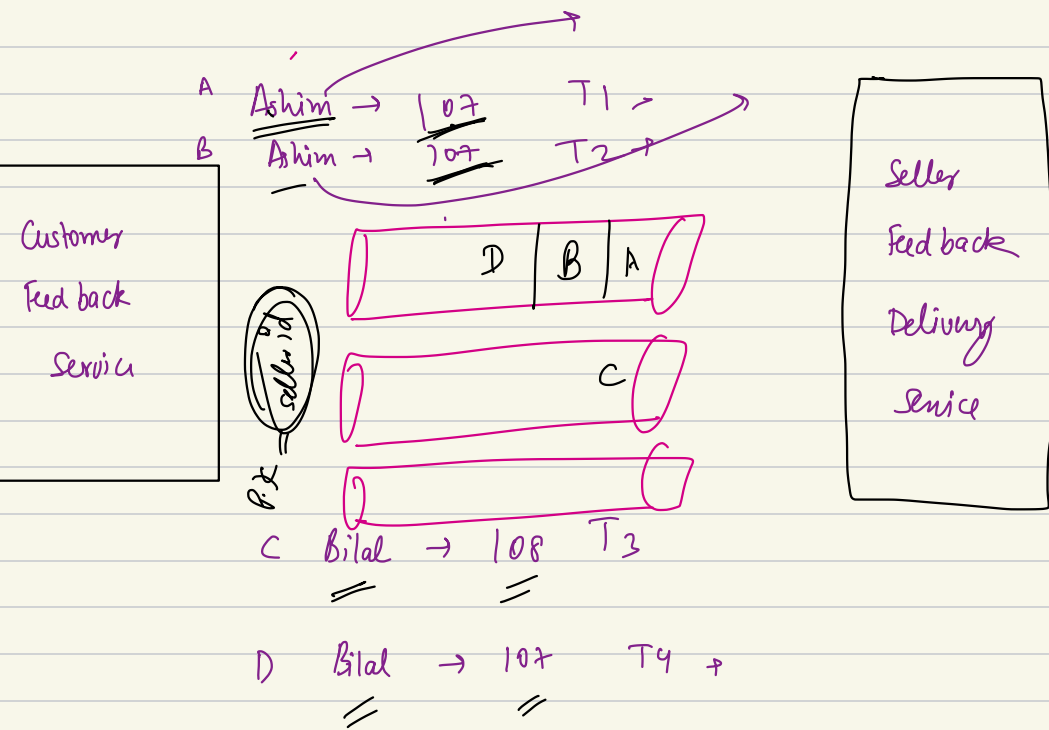 A Ashim → 107 T1
B Ashim → 107 T2
Customer
Feedback
Service
D B A
C
seller id
P.K
Seller
Feedback
Delivery
Service
C Bilal → 108 T3
D Bilal → 107 T4